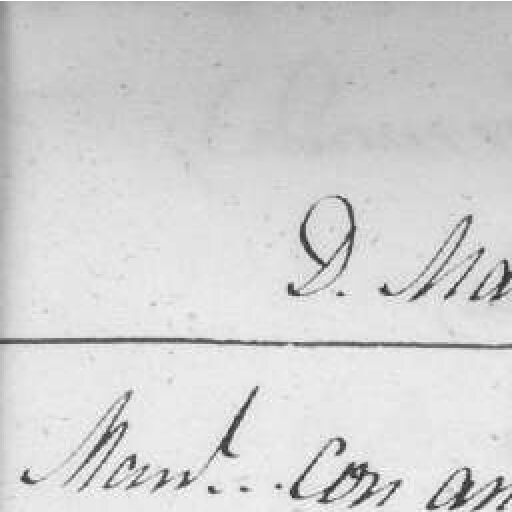 D. Ma
Man.l.. con an